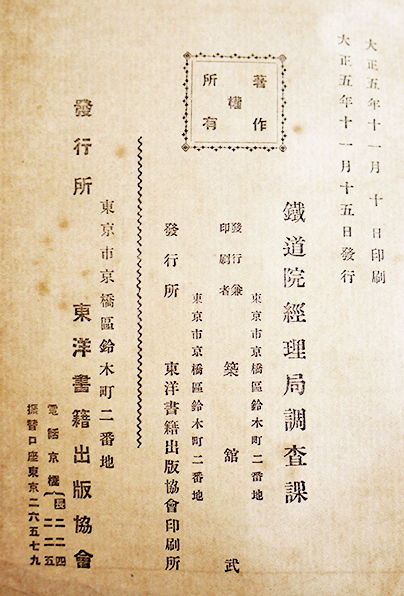 大正五年十一月十日印刷
大正五年十一月十五日發行
著作
權
所有
鐵道院經理局調査課
東京市京橋區鈴木町二番地
發行兼
印刷者
築舘武
東京市京橋區鈴木町二番地
發行所 東洋書籍出版協會印刷所
東京市京橋區鈴木町二番地
發行所 東洋書籍出版協會
電話京橋(長二二四
二二五
振替口座東京二六五七九